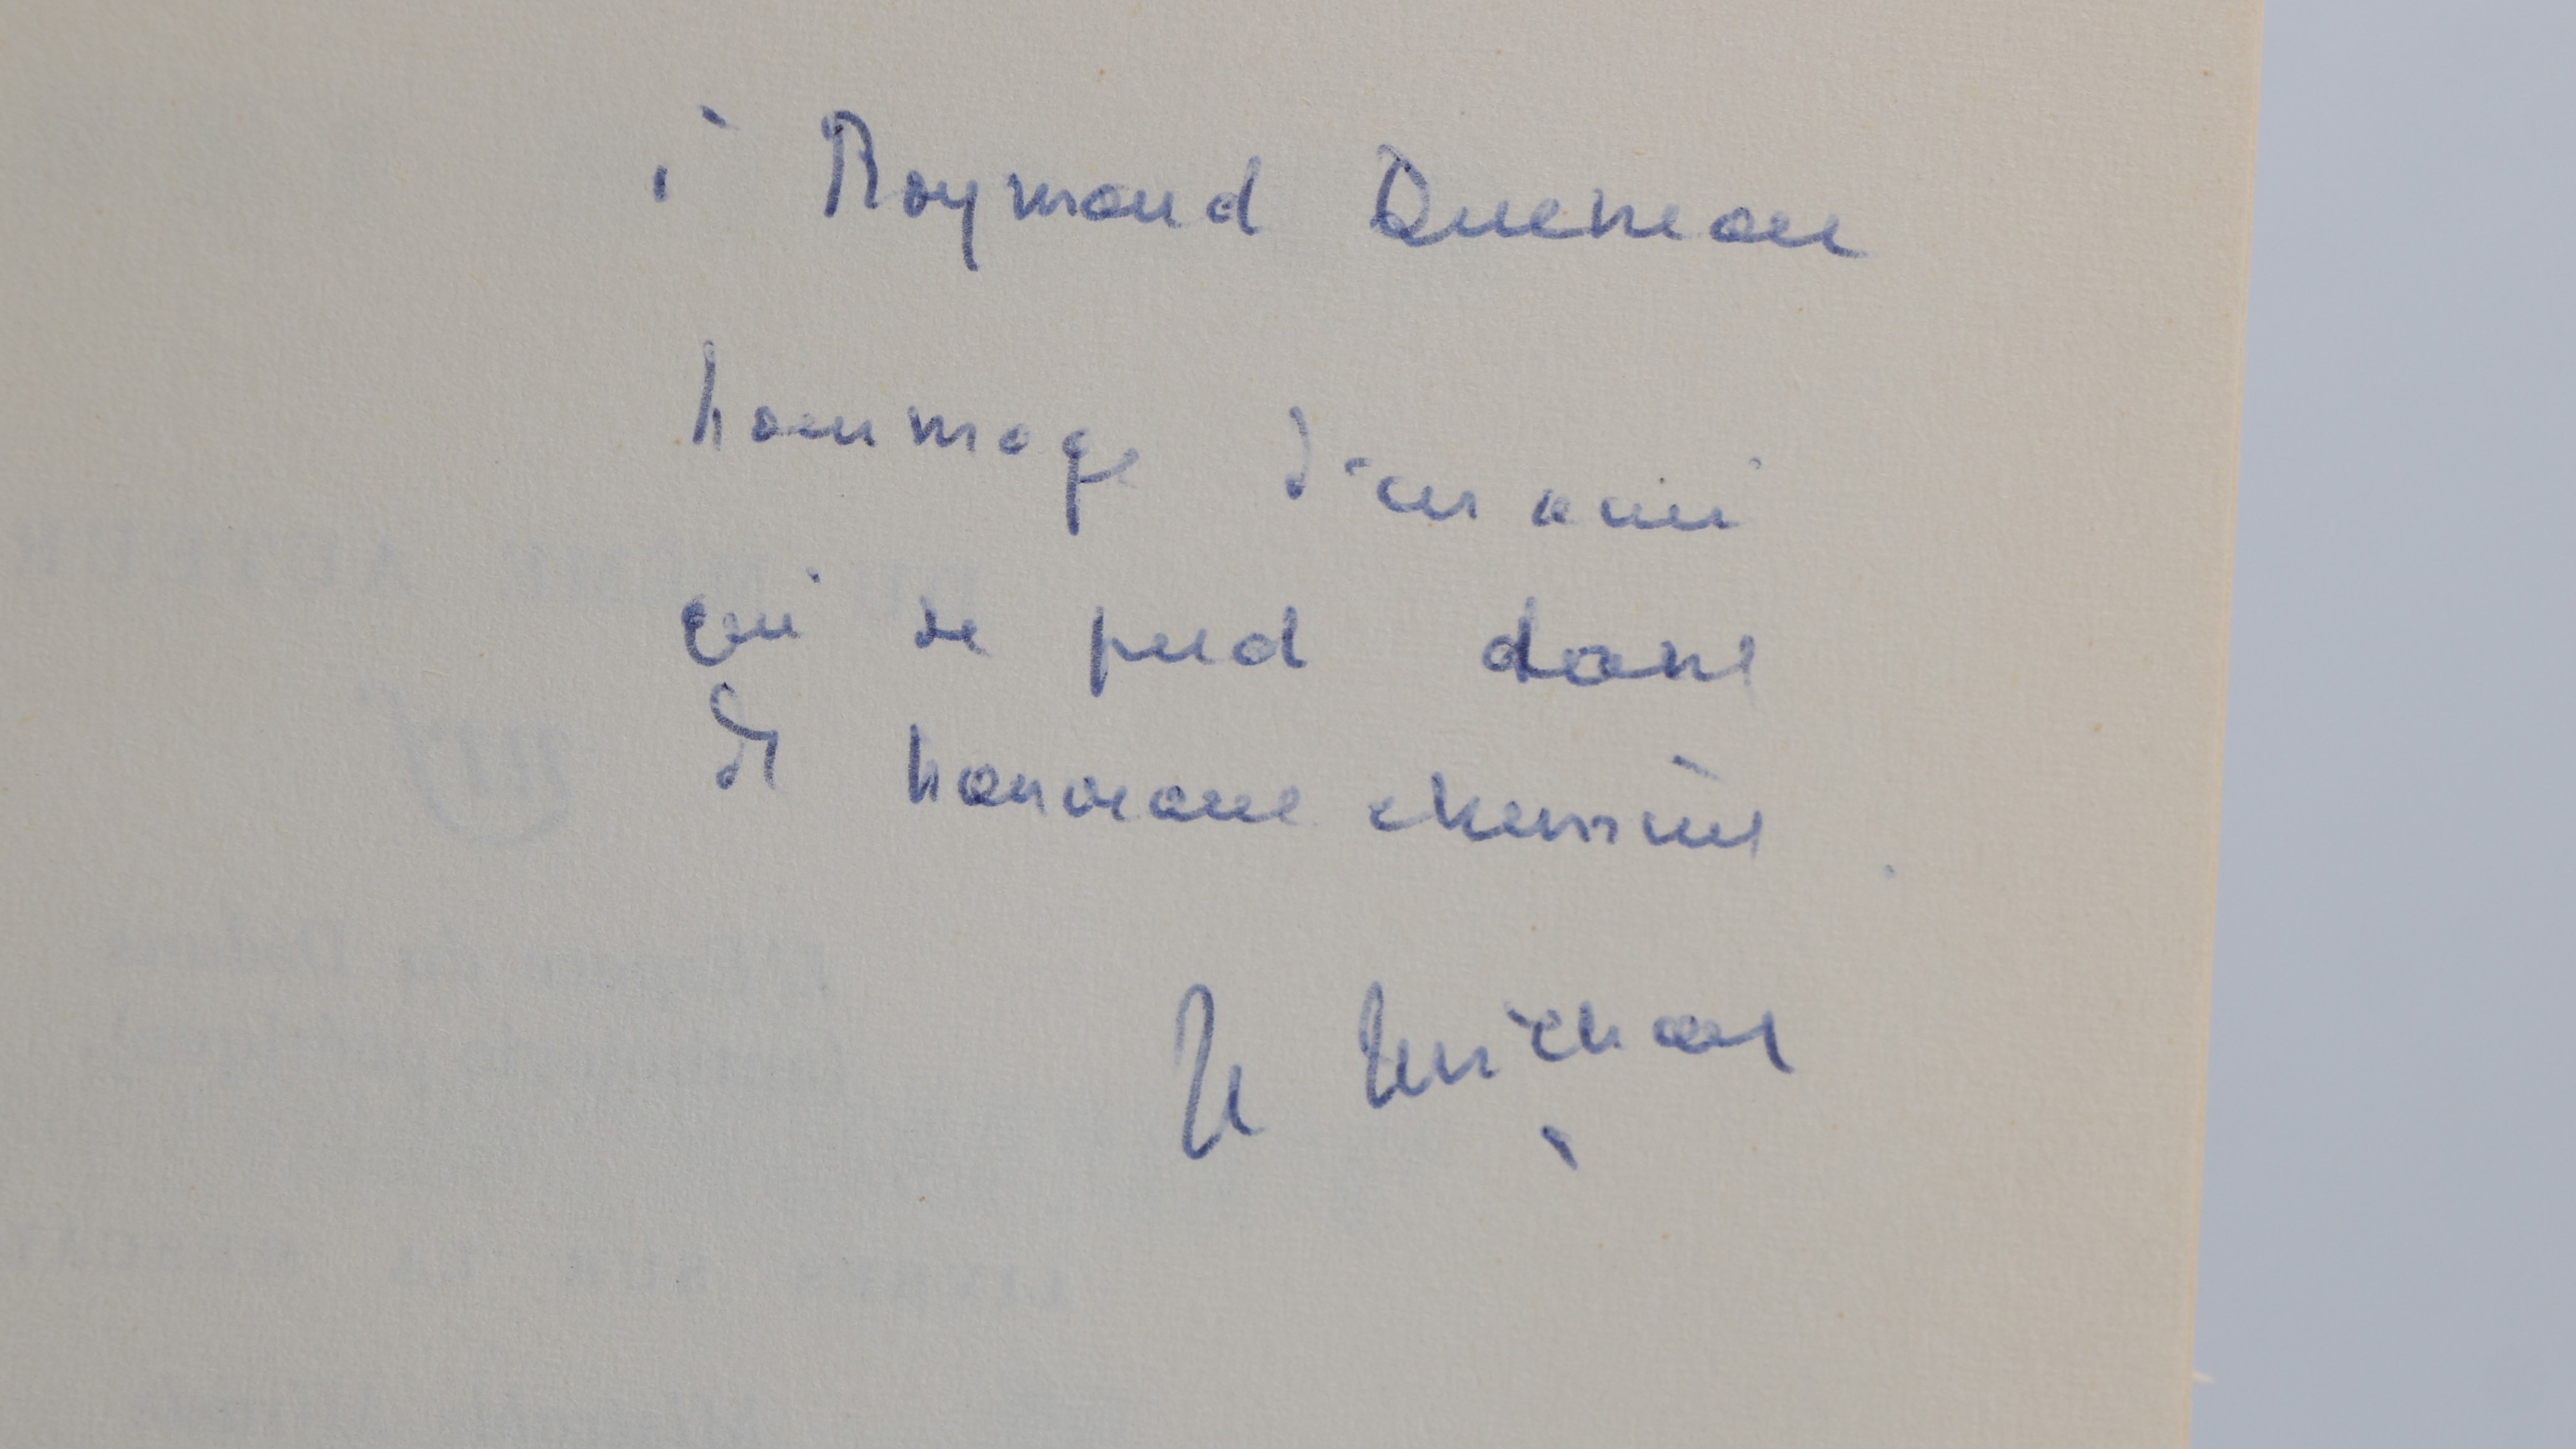 à Raymond Queneau
hommage d'un ami
qui se perd dans
de nouveaux chemins.
H Michaux